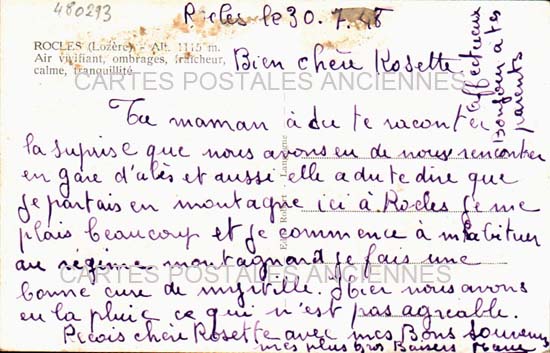 480293
Rocles le 30. 7. 48
ROCLES (Lozère) - Alt. 1115 m.
Air vivifiant, ombrages, fraîcheur,
calme, tranquillité.
Bien chère Rosette
CARTES POSTALES ANCIENNES
affectueux
bonjour à tes
parents
Ta maman a du te raconter
la suprise que nous avons eu de nous rencontrer
en gare d'alès et aussi elle a du te dire que
je partais en montagne ici à Rocles je me
plais beaucoup et je commence à m'abituer
au régime montagnard je fais une
CARTES POSTALES ANCIENNES
bonne cure de myrtille. Hier nous avons
eu la pluie ce qui n'est pas agréable.
Recois chère Rosette avec mes Bons Souvenirs
mes plus gros Baisers